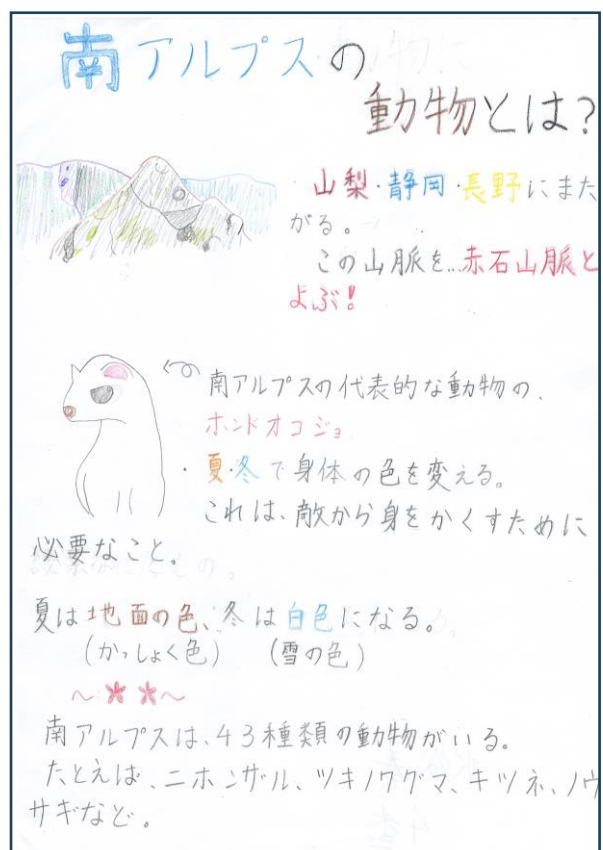 南アルプスの
動物とは?
山梨・静岡・長野にまた
がる。
この山脈を…赤石山脈と
よぶ!
南アルプスの代表的な動物の、
ホンドオコジョ
・夏・冬で身体の色を変える。
これは、敵から身をかくすために
必要なこと。
夏は地面の色、冬は白色になる。
(かっしょく色) (雪の色)
～**～
南アルプスは、43種類の動物がいる。
たとえば、ニホンザル、ツキノワグマ、キツネ、ノウ
サギなど。